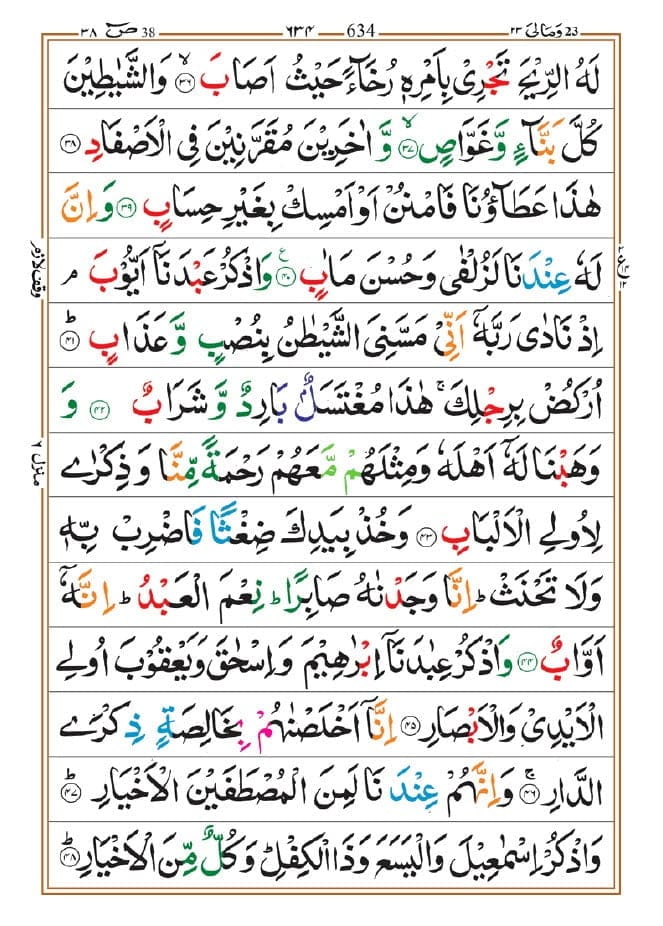 ٣٨ صٓ 38 ٦٣٤ 634 ٢٣ وَمَالِیَ 23
لَهُ الرِّيْحَ تَجْرِىْ بِاَمْرِهٖ رُخَآءً حَيْثُ اَصَابَ ۙ‏﴿۳۶﴾ وَالشَّيٰطِيْنَ
كُلَّ بَنَّآءٍ وَّغَوَّاصٍۙ‏﴿۳۷﴾ وَّاٰخَرِيْنَ مُقَرَّنِيْنَ فِى الْاَصْفَادِ‏﴿۳۸﴾
هٰذَا عَطَآؤُنَا فَامْنُنْ اَوْ اَمْسِكْ بِغَيْرِ حِسَابٍ‏﴿۳۹﴾ وَاِنَّ
لَهٗ عِنْدَنَا لَزُلْفٰى وَحُسْنَ مَاٰبٍ‏﴿۴۰﴾ ع وَاذْكُرْ عَبْدَنَاۤ اَيُّوْبَ ۘ
وقف لازم
اِذْ نَادٰى رَبَّهٗۤ اَنِّىْ مَسَّنِىَ الشَّيْطٰنُ بِنُصْبٍ وَّعَذَابٍؕ‏﴿۴۱﴾
اُرْكُضْ بِرِجْلِكَ ۚ هٰذَا مُغْتَسَلٌۢ بَارِدٌ وَّشَرَابٌ‏﴿۴۲﴾ وَ
وَهَبْنَا لَهٗۤ اَهْلَهٗ وَمِثْلَهُمْ مَّعَهُمْ رَحْمَةً مِّنَّا وَذِكْرٰى
منزل ٦
لِاُولِى الْاَلْبَابِ‏﴿۴۳﴾ وَخُذْ بِيَدِكَ ضِغْثًا فَاضْرِبْ بِّهٖ
وَلَا تَحْنَثْؕ اِنَّا وَجَدْنٰهُ صَابِرًاؕ نِعْمَ الْعَبْدُؕ اِنَّهٗۤ
اَوَّابٌ‏﴿۴۴﴾ وَاذْكُرْ عِبٰدَنَاۤ اِبْرٰهِيْمَ وَاِسْحٰقَ وَيَعْقُوْبَ اُولِى
الْاَيْدِىْ وَالْاَبْصَارِ‏﴿۴۵﴾ اِنَّاۤ اَخْلَصْنٰهُمْ بِخَالِصَةٍ ذِكْرَى
الدَّارِۚ‏﴿۴۶﴾ وَاِنَّهُمْ عِنْدَنَا لَمِنَ الْمُصْطَفَيْنَ الْاَخْيَارِؕ‏﴿۴۷﴾
وَاذْكُرْ اِسْمٰعِيْلَ وَالْيَسَعَ وَذَا الْكِفْلِؕ وَكُلٌّ مِّنَ الْاَخْيَارِؕ‏﴿۴۸﴾